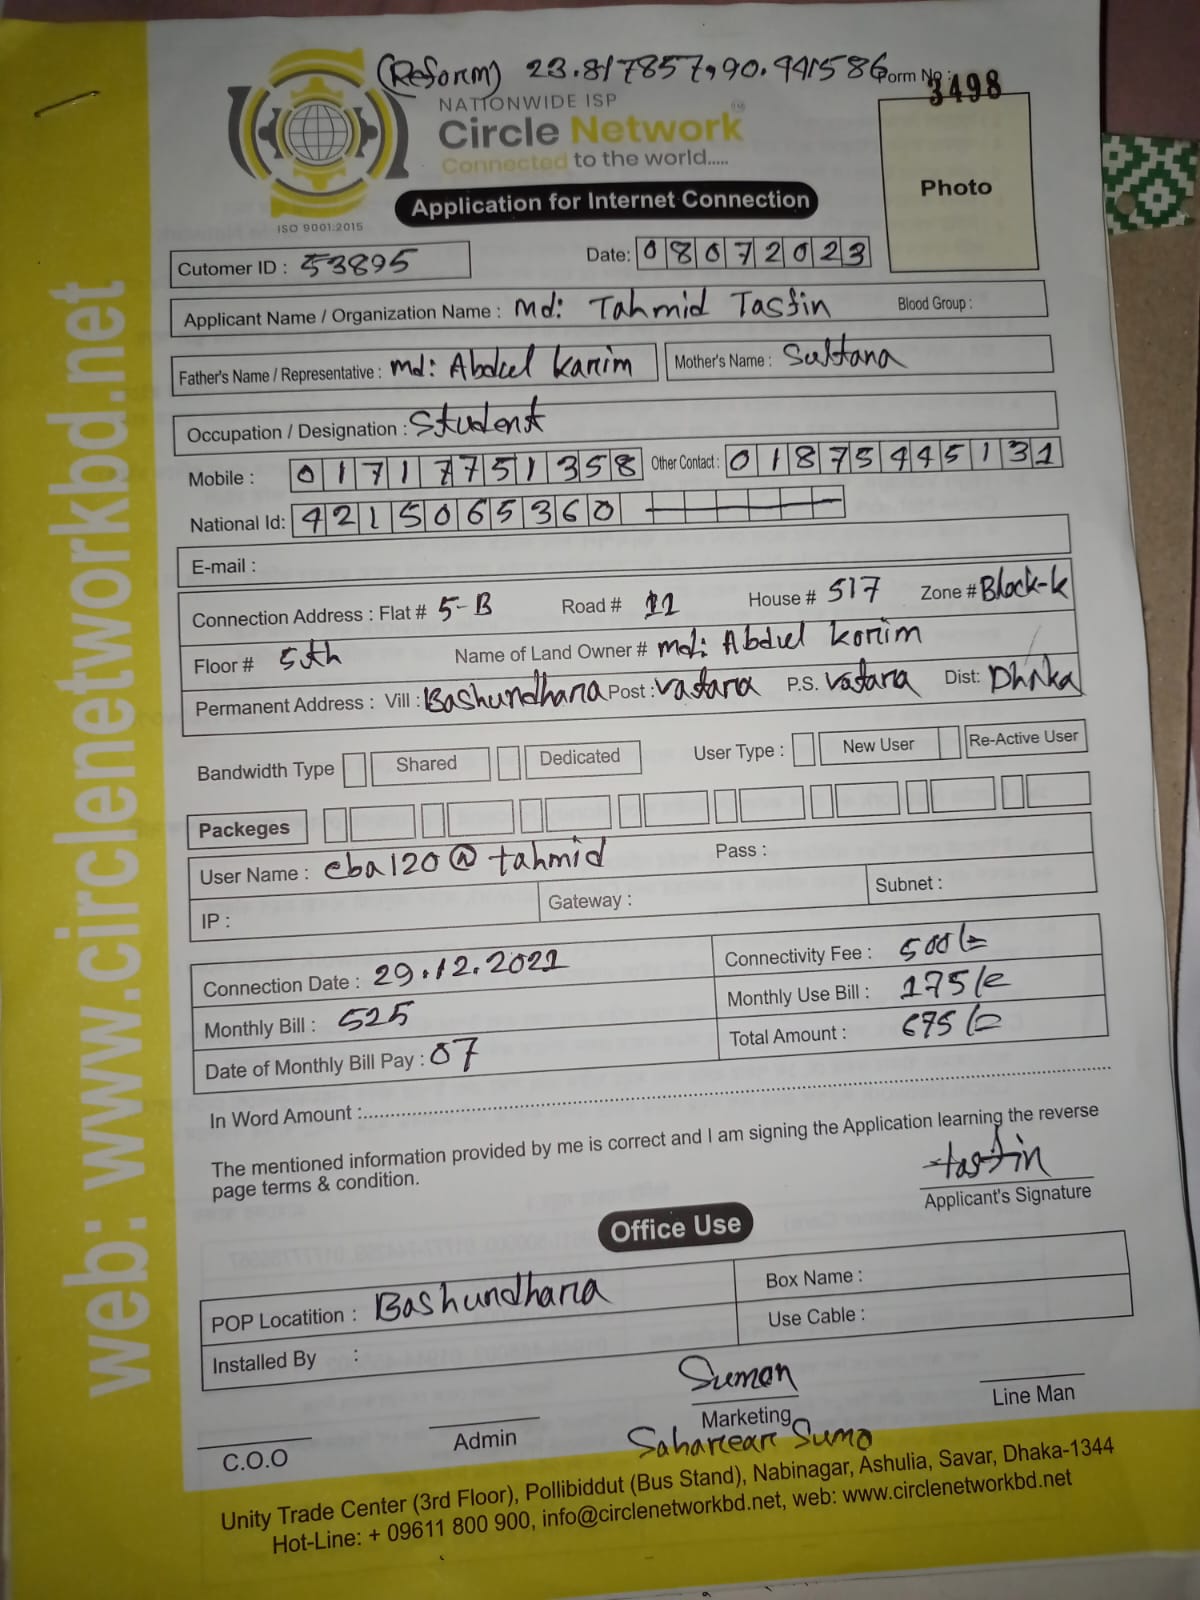 (Reform) 23.817857,90.441586 Form No: 3498
NATIONWIDE ISP
Circle Network
Connected to the world.....
ISO 9001:2015
Application for Internet Connection
Photo
Cutomer ID : 53895 Date: 08072023
Applicant Name / Organization Name : Md: Tahmid Tasfin Blood Group :
Father's Name / Representative : Md: Abdul Karim Mother's Name : Sultana
Occupation / Designation : Student
Mobile : 01717751358 Other Contact : 01875445131
National Id: 4215065360
E-mail :
Connection Address : Flat # 5-B Road # 11 House # 517 Zone # Block-k
Floor # 5th Name of Land Owner # Md: Abdul Korim
Permanent Address : Vill : Bashundhara Post : vatara P.S. vatara Dist: Dhaka
Bandwidth Type Shared Dedicated User Type : New User Re-Active User
Packeges
User Name : eba120@tahmid Pass :
IP : Gateway : Subnet :
Connection Date : 29.12.2021 Connectivity Fee : 500/=
Monthly Bill : 525 Monthly Use Bill : 175/=
Date of Monthly Bill Pay : 07 Total Amount : 675/=
In Word Amount :
The mentioned information provided by me is correct and I am signing the Application learning the reverse
page terms & condition.
tasfin
Applicant's Signature
Office Use
POP Locatition : Bashundhara Box Name :
Installed By : Use Cable :
Suman
C.O.O Admin Marketing Line Man
Saharear Sumo
Unity Trade Center (3rd Floor), Pollibiddut (Bus Stand), Nabinagar, Ashulia, Savar, Dhaka-1344
Hot-Line: + 09611 800 900, info@circlenetworkbd.net, web: www.circlenetworkbd.net
web: www.circlenetworkbd.net